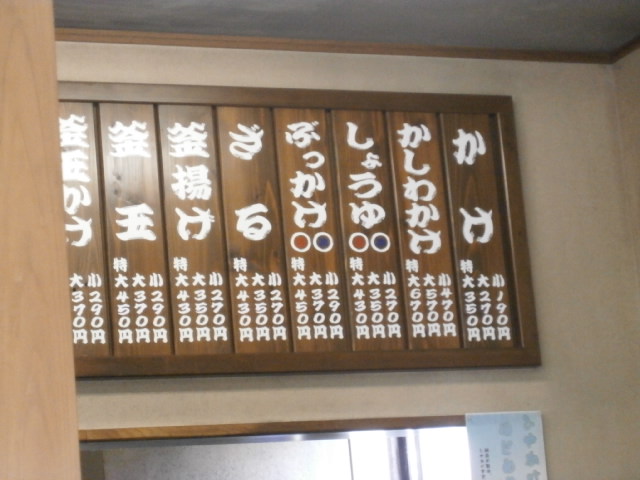 かけ
小190円
大270円
特350円
かしわかけ
小470円
大570円
特670円
しょうゆ
小270円
大350円
特430円
ぶっかけ
小290円
大370円
特450円
ざる
小270円
大350円
特430円
釜揚げ
小270円
大350円
特430円
釜玉
小290円
大370円
特450円
釜玉かけ
小290円
大370円